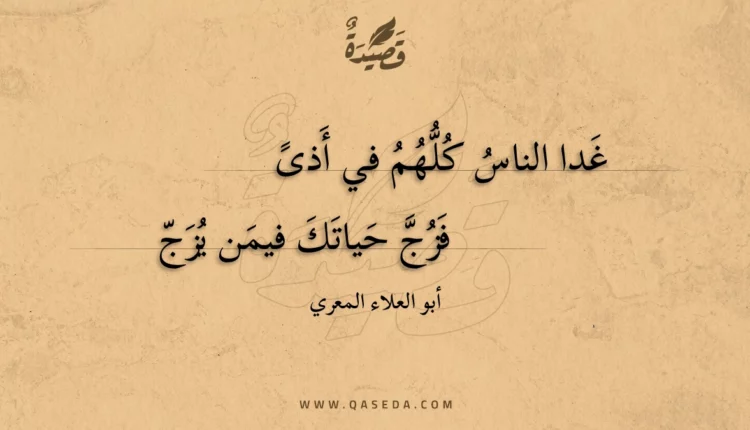 قَصِيدَةٌ
غَدا الناسُ كُلُّهُمُ في أَذىً
فَزُجَّ حَياتَكَ فيمَن يُزَجّ
أبو العلاء المعري
WWW.QASEDA.COM